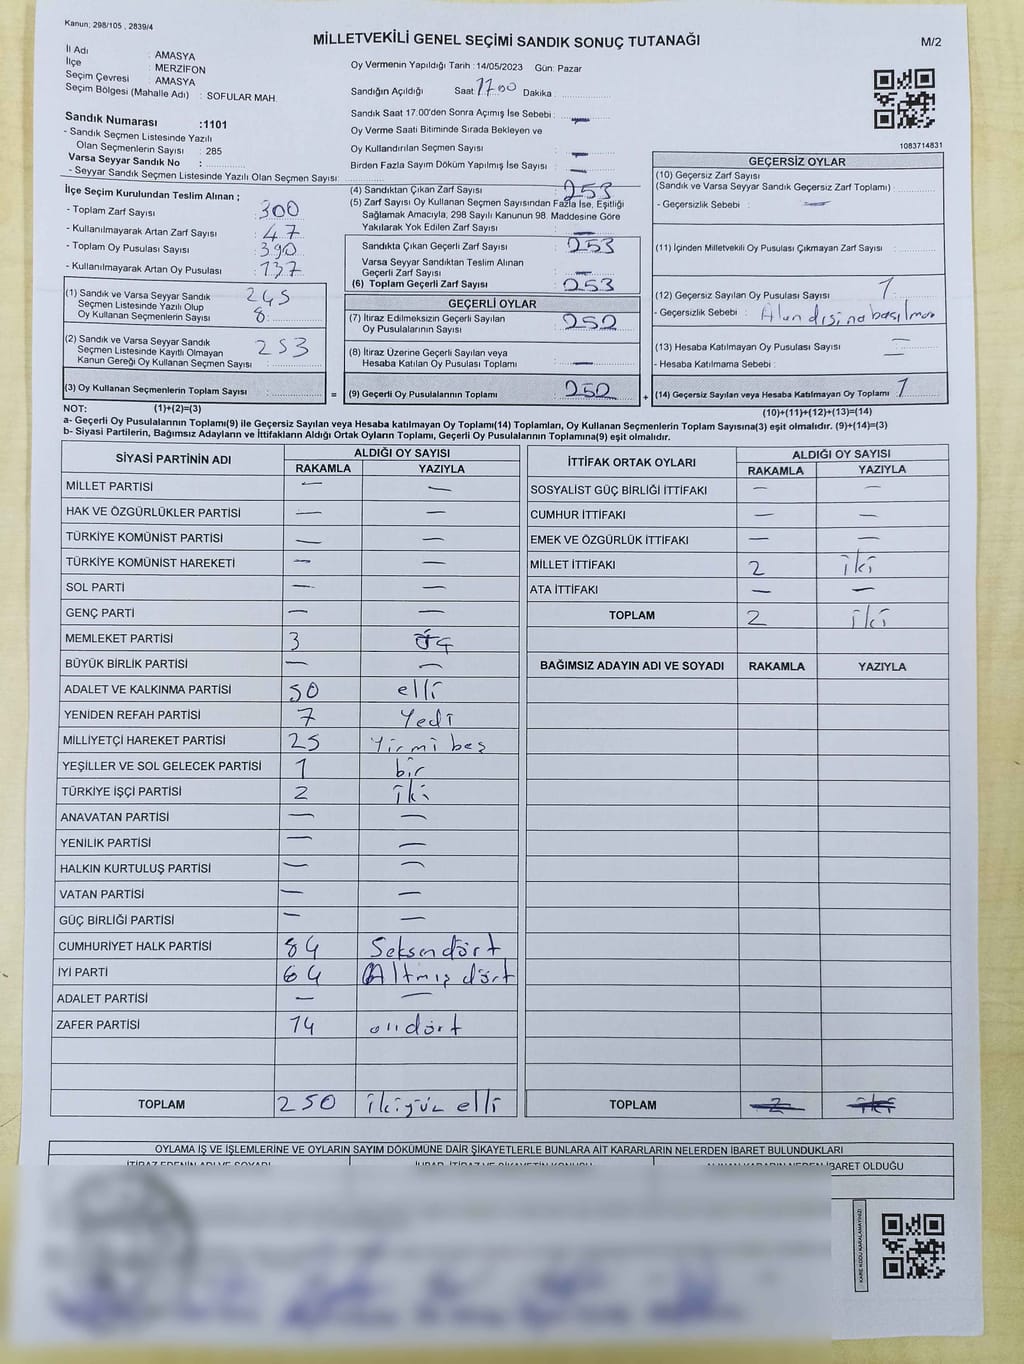 Kanun; 298/105 , 2839/4
MİLLETVEKİLİ GENEL SEÇİMİ SANDIK SONUÇ TUTANAĞI
M/2
İl Adı : AMASYA
İlçe : MERZİFON
Seçim Çevresi : AMASYA
Seçim Bölgesi (Mahalle Adı) : SOFULAR MAH.
Oy Vermenin Yapıldığı Tarih :14/05/2023 Gün: Pazar
Sandığın Açıldığı Saat: 1700 Dakika :
Sandık Saat 17.00'den Sonra Açımış İse Sebebi : —
Oy Verme Saati Bitiminde Sırada Bekleyen ve
Oy Kullandırılan Seçmen Sayısı : —
Birden Fazla Sayım Döküm Yapılmış İse Sayısı : —
1083714831
Sandık Numarası :1101
- Sandık Seçmen Listesinde Yazılı
Olan Seçmenlerin Sayısı : 285
Varsa Seyyar Sandık No :
- Seyyar Sandık Seçmen Listesinde Yazılı Olan Seçmen Sayısı:
İlçe Seçim Kurulundan Teslim Alınan ;
- Toplam Zarf Sayısı : 300
- Kullanılmayarak Artan Zarf Sayısı : 47
- Toplam Oy Pusulası Sayısı : 390
- Kullanılmayarak Artan Oy Pusulası : 137
(1) Sandık ve Varsa Seyyar Sandık
Seçmen Listesinde Yazılı Olup
Oy Kullanan Seçmenlerin Sayısı : 245
8
(2) Sandık ve Varsa Seyyar Sandık
Seçmen Listesinde Kayıtlı Olmayan
Kanun Gereği Oy Kullanan Seçmen Sayısı : 253
(3) Oy Kullanan Seçmenlerin Toplam Sayısı :
(4) Sandıktan Çıkan Zarf Sayısı : 253
(5) Zarf Sayısı Oy Kullanan Seçmen Sayısından Fazla İse, Eşitliği
Sağlamak Amacıyla, 298 Sayılı Kanunun 98. Maddesine Göre
Yakılarak Yok Edilen Zarf Sayısı : —
Sandıkta Çıkan Geçerli Zarf Sayısı : 253
Varsa Seyyar Sandıktan Teslim Alınan
Geçerli Zarf Sayısı : —
(6) Toplam Geçerli Zarf Sayısı : 253
GEÇERLİ OYLAR
(7) İtiraz Edilmeksizin Geçerli Sayılan
Oy Pusulalarının Sayısı : 252
(8) İtiraz Üzerine Geçerli Sayılan veya
Hesaba Katılan Oy Pusulası Toplamı : —
= (9) Geçerli Oy Pusulalarının Toplamı : 252 +
GEÇERSİZ OYLAR
(10) Geçersiz Zarf Sayısı
(Sandık ve Varsa Seyyar Sandık Geçersiz Zarf Toplamı) :
- Geçersizlik Sebebi : —
(11) İçinden Milletvekili Oy Pusulası Çıkmayan Zarf Sayısı :
(12) Geçersiz Sayılan Oy Pusulası Sayısı : 1
- Geçersizlik Sebebi : Alan dışına basılması
(13) Hesaba Katılmayan Oy Pusulası Sayısı : —
- Hesaba Katılmama Sebebi : —
(14) Geçersiz Sayılan veya Hesaba Katılmayan Oy Toplamı : 1
NOT: (1)+(2)=(3)
(10)+(11)+(12)+(13)=(14)
a- Geçerli Oy Pusulalarının Toplamı(9) ile Geçersiz Sayılan veya Hesaba katılmayan Oy Toplamı(14) Toplamları, Oy Kullanan Seçmenlerin Toplam Sayısına(3) eşit olmalıdır. (9)+(14)=(3)
b- Siyasi Partilerin, Bağımsız Adayların ve İttifakların Aldığı Ortak Oyların Toplamı, Geçerli Oy Pusulalarının Toplamına(9) eşit olmalıdır.
SİYASİ PARTİNİN ADI ALDIĞI OY SAYISI
RAKAMLA YAZIYLA
MİLLET PARTİSİ — —
HAK VE ÖZGÜRLÜKLER PARTİSİ — —
TÜRKİYE KOMÜNİST PARTİSİ — —
TÜRKİYE KOMÜNİST HAREKETİ — —
SOL PARTİ — —
GENÇ PARTİ — —
MEMLEKET PARTİSİ 3 üç
BÜYÜK BİRLİK PARTİSİ — —
ADALET VE KALKINMA PARTİSİ 50 elli
YENİDEN REFAH PARTİSİ 7 Yedi
MİLLİYETÇİ HAREKET PARTİSİ 25 Yirmi beş
YEŞİLLER VE SOL GELECEK PARTİSİ 1 bir
TÜRKİYE İŞÇİ PARTİSİ 2 iki
ANAVATAN PARTİSİ — —
YENİLİK PARTİSİ — —
HALKIN KURTULUŞ PARTİSİ — —
VATAN PARTİSİ — —
GÜÇ BİRLİĞİ PARTİSİ — —
CUMHURİYET HALK PARTİSİ 84 Seksendört
İYİ PARTİ 64 Altmış dört
ADALET PARTİSİ — —
ZAFER PARTİSİ 14 ondört
TOPLAM 250 ikiyüz elli
İTTİFAK ORTAK OYLARI ALDIĞI OY SAYISI
RAKAMLA YAZIYLA
SOSYALİST GÜÇ BİRLİĞİ İTTİFAKI — —
CUMHUR İTTİFAKI — —
EMEK VE ÖZGÜRLÜK İTTİFAKI — —
MİLLET İTTİFAKI 2 iki
ATA İTTİFAKI — —
TOPLAM 2 iki
BAĞIMSIZ ADAYIN ADI VE SOYADI RAKAMLA YAZIYLA
TOPLAM 2 iki
OYLAMA İŞ VE İŞLEMLERİNE VE OYLARIN SAYIM DÖKÜMÜNE DAİR ŞİKAYETLERLE BUNLARA AİT KARARLARIN NELERDEN İBARET BULUNDUKLARI
İBARET OLDUĞU
KARE KODU KARALAMAYINIZ!